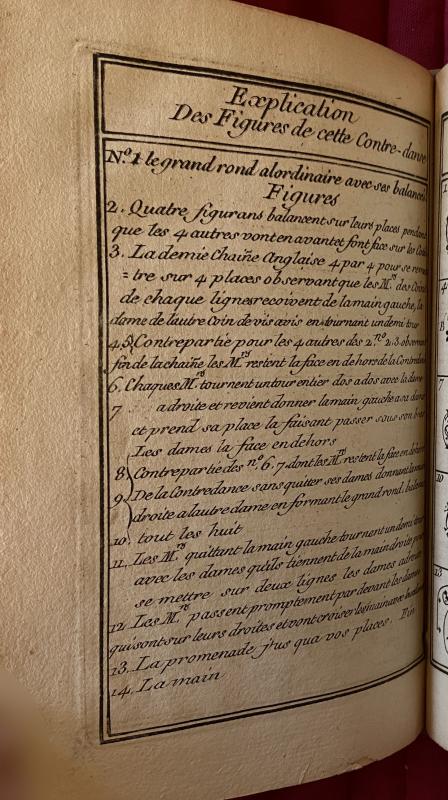 Explication
Des Figures de cette Contre-danse
N.º 1 le grand rond alordinaire avec ses balancés
Figures
2. Quatre figurans balancent sur leurs places pendant
que les 4 autres vont en avant et font face sur les
3. La demie Chaine Anglaise 4 par 4 pour se
=tre sur 4 places observant que les M.rs des
de chaque lignes recoivent de la main gauche, la
dame de lautre Coin de vis avis en tournant un demi tour
4.5 Contrepartie pour les 4 autres des 2.nº 2.3.
fin de la chaine les M.rs restent la face en dehors de la
6. Chaques M.rs tournent un tour entier dos a dos avec la dame
7 a droite et revient donner la main gauche a sa
et prend sa place la faisant passer sous son bras
Les dames la face en dehors
8 Contrepartie des nº. 6. 7. dont les M.rs restent la face en
9 De la Contredance sans quitter ses dames donnant la main
droite a lautre dame en formant le grand rond.
10. tout les huit
11. Les M.rs quittant la main gauche tournent un demi tour
avec les dames quils tiennent de la main droite pour
se mettre sur deux lignes les dames
12. Les M.rs passent promptement par devant les dames
qui sont sur leurs droites et vont croiser les mains avec
13. La promenade j'us qua vos places. Fin
14. La main